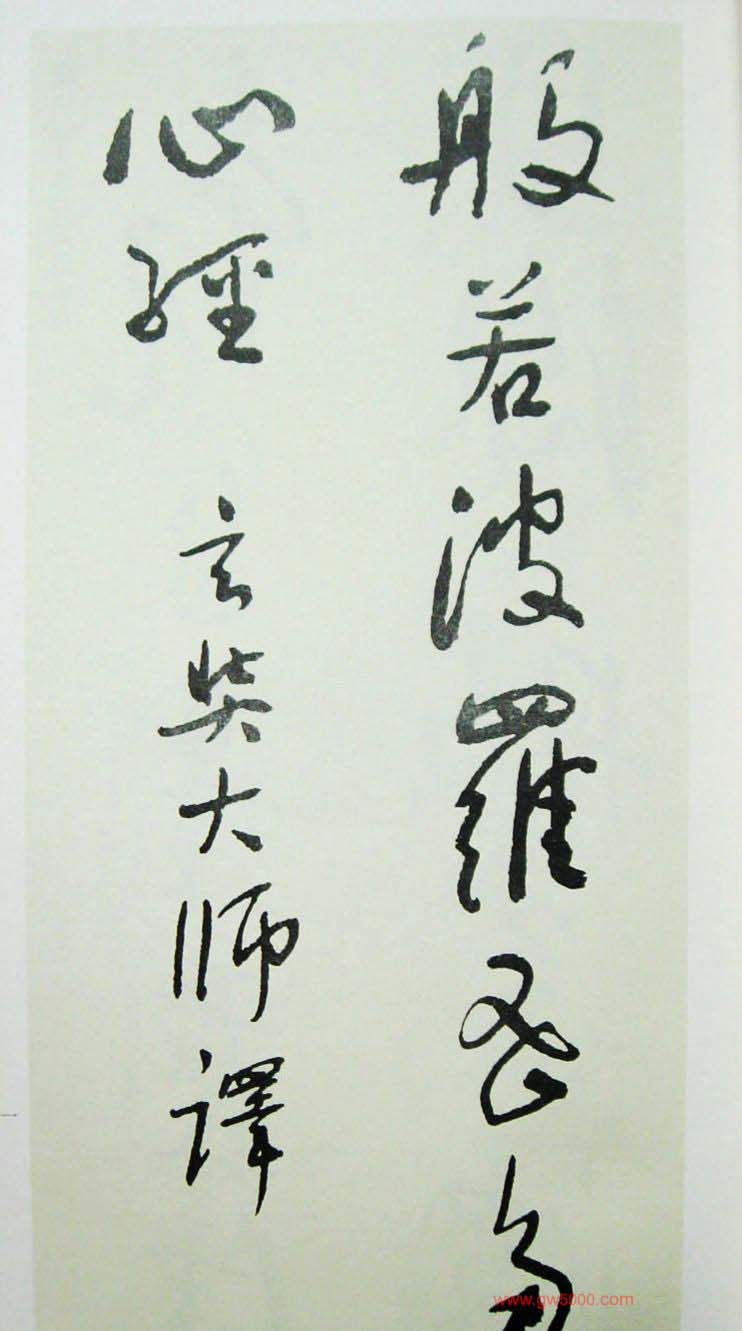 般若波羅蜜多
心經 玄奘大師譯
www.gw5000.com